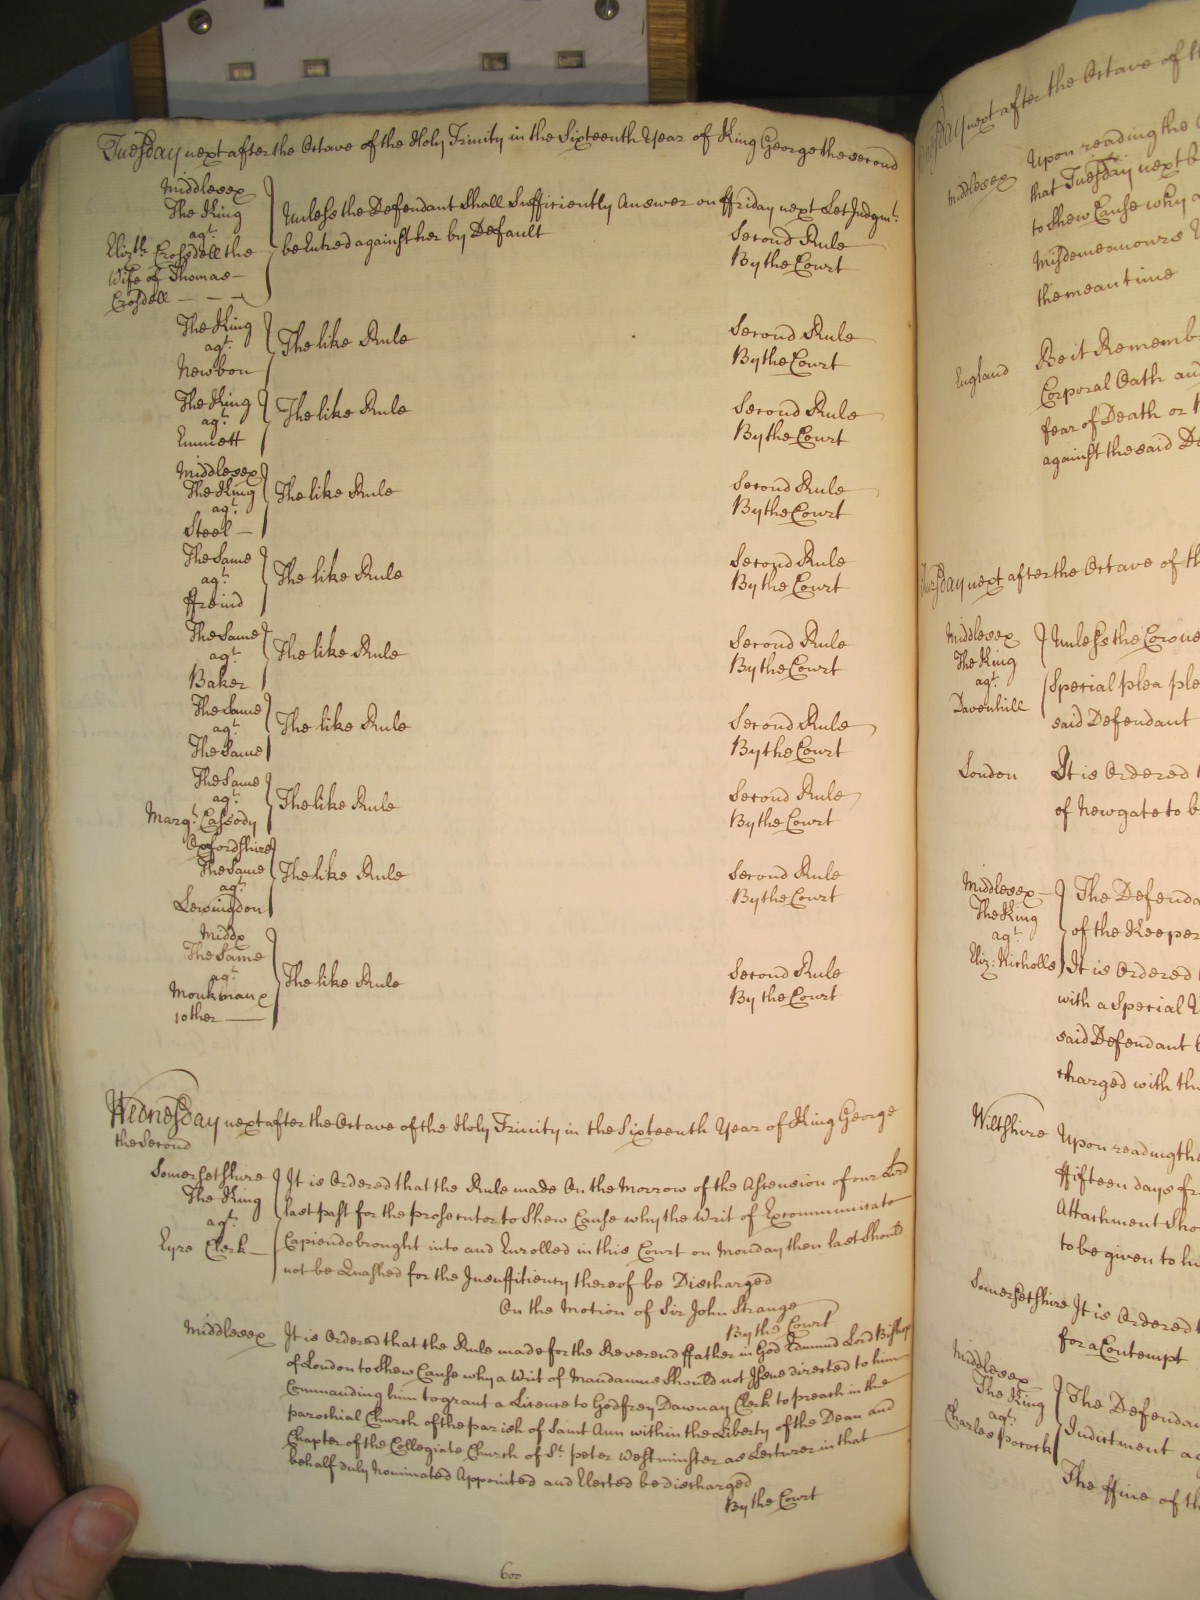 Tuesday next after the Octave of the Holy Trinity in the Sixteenth Year of King George the second
Middlesex
The King
agt.
Elizth. Crossdell the
Wife of Thomas
Crosdell
Unless the Defendant Shall Sufficiently Answer on ffriday next Let Judgmt.
be Entred against her by Default
Second Rule
By the Court
The King
agt.
Newbon
The like Rule
Second Rule
By the Court
The King
agt.
Emmett
The like Rule
Second Rule
By the Court
Middlesex
The King
agt.
Steel
The like Rule
Second Rule
By the Court
The Same
agt.
ffreind
The like Rule
Second Rule
By the Court
The Same
agt.
Baker
The like Rule
Second Rule
By the Court
The Same
agt.
The Same
The like Rule
Second Rule
By the Court
The Same
agt.
Margt. Cassody
The like Rule
Second Rule
By the Court
Oxfordshire
The Same
agt.
Lewingdon
The like Rule
Second Rule
By the Court
Middx
The Same
agt.
Monkman &
1 other
The like Rule
Second Rule
By the Court
Wednesday next after the Octave of the Holy Trinity in the Sixteenth Year of King George
the Second
Somersetshire
The King
agt.
Eyre Clerk
It is Ordered that the Rule made On the Morrow of the Ascension of our Lord
last past for the prosecutor to Shew Cause why the Writ of Excommunicato
Capiendo brought into and Enrolled in this Court on Monday then last Should
not be Quashed for the Insufficiency thereof be Discharged
On the Motion of Sir John Strange
By the Court
Middlesex
It is Ordered that the Rule made for the Reverend ffather in God Edmund Lord Bishop
of London to Shew Cause why a Writ of Mandamus Should not Issue directed to him
Commanding him to grant a Licence to Godfrey Dawnay Clerk to preach in the
parochial Church of the parish of Saint Ann within the Liberty of the Dean and
Chapter of the Collegiate Church of St. peter Westminster as Lecturer in that
behalf duly Nominated Appointed and Elected be discharged
By the Court
600
next after the Octave of
Middlesex
Upon reading the
that Tuesday next
to Shew Cause why
Misdemeanours
the mean time
England
Be it Rememb
Corporal Oath and
fear of Death or
against the said
next after the Octave of
Middlesex
The King
agt.
Davenhill
Unless the Corone
Special plea ple
said Defendant
London
It is Ordered
of Newgate to b
Middlesex
The King
agt.
Eliz: Nicholls
The Defenda
of the Keeper
It is Ordered
with a Special
said Defendant
charged with th
Wiltshire
Upon reading the
ffifteen days
Attachment Sho
to be given to
Somersetshire
It is Ordered
for a Contempt
Middlesex
The King
agt.
Charles Pocock
The Defendan
Indictment
The ffine of th